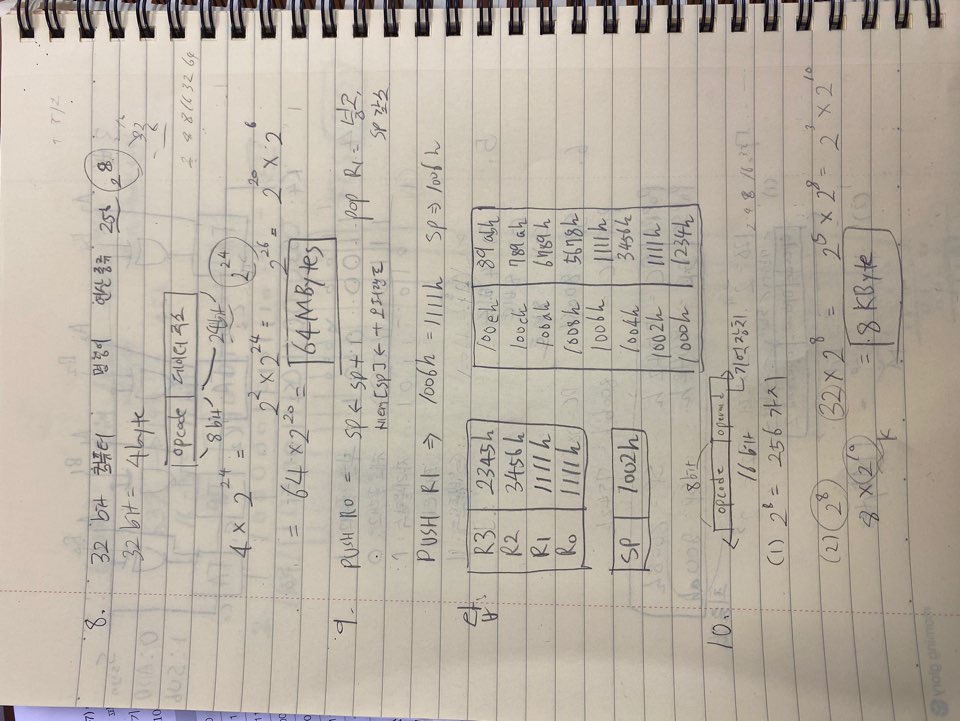 8. 32 bit 컴퓨터 명령어 연산종류 256 2^8
32 bit = 4byte
opcode 데이터 주소
8bit 24bit
4 × 2^24 = 2^24
2^2 × 2^24 = 2^26 = 2^20 × 2^6
= 64 × 2^20 = 64MBytes
9. PUSH R0 = SP ← SP+ POP R1 = 넣고,
Mem[SP] ← + 오퍼랜드 SP 감소
PUSH R1 ⇒ 1006h = 1111h SP ⇒ 1006h
답.
R3 2345h
R2 3456h
R1 1111h
R0 1111h
SP 1002h
100eh 89abh
100ch 789ah
100ah 6789h
1008h 5678h
1006h 1111h
1004h 3456h
1002h 1111h
1000h 1234h
10. 8bit
opcode operand
16 bit 기억장치
(1) 2^8 = 256 가지
(2) 2^8 32 × 2^8 = 2^5 × 2^8 = 2^3 × 2^10
8 × 2^10 = 8 KByte
K
morning glory